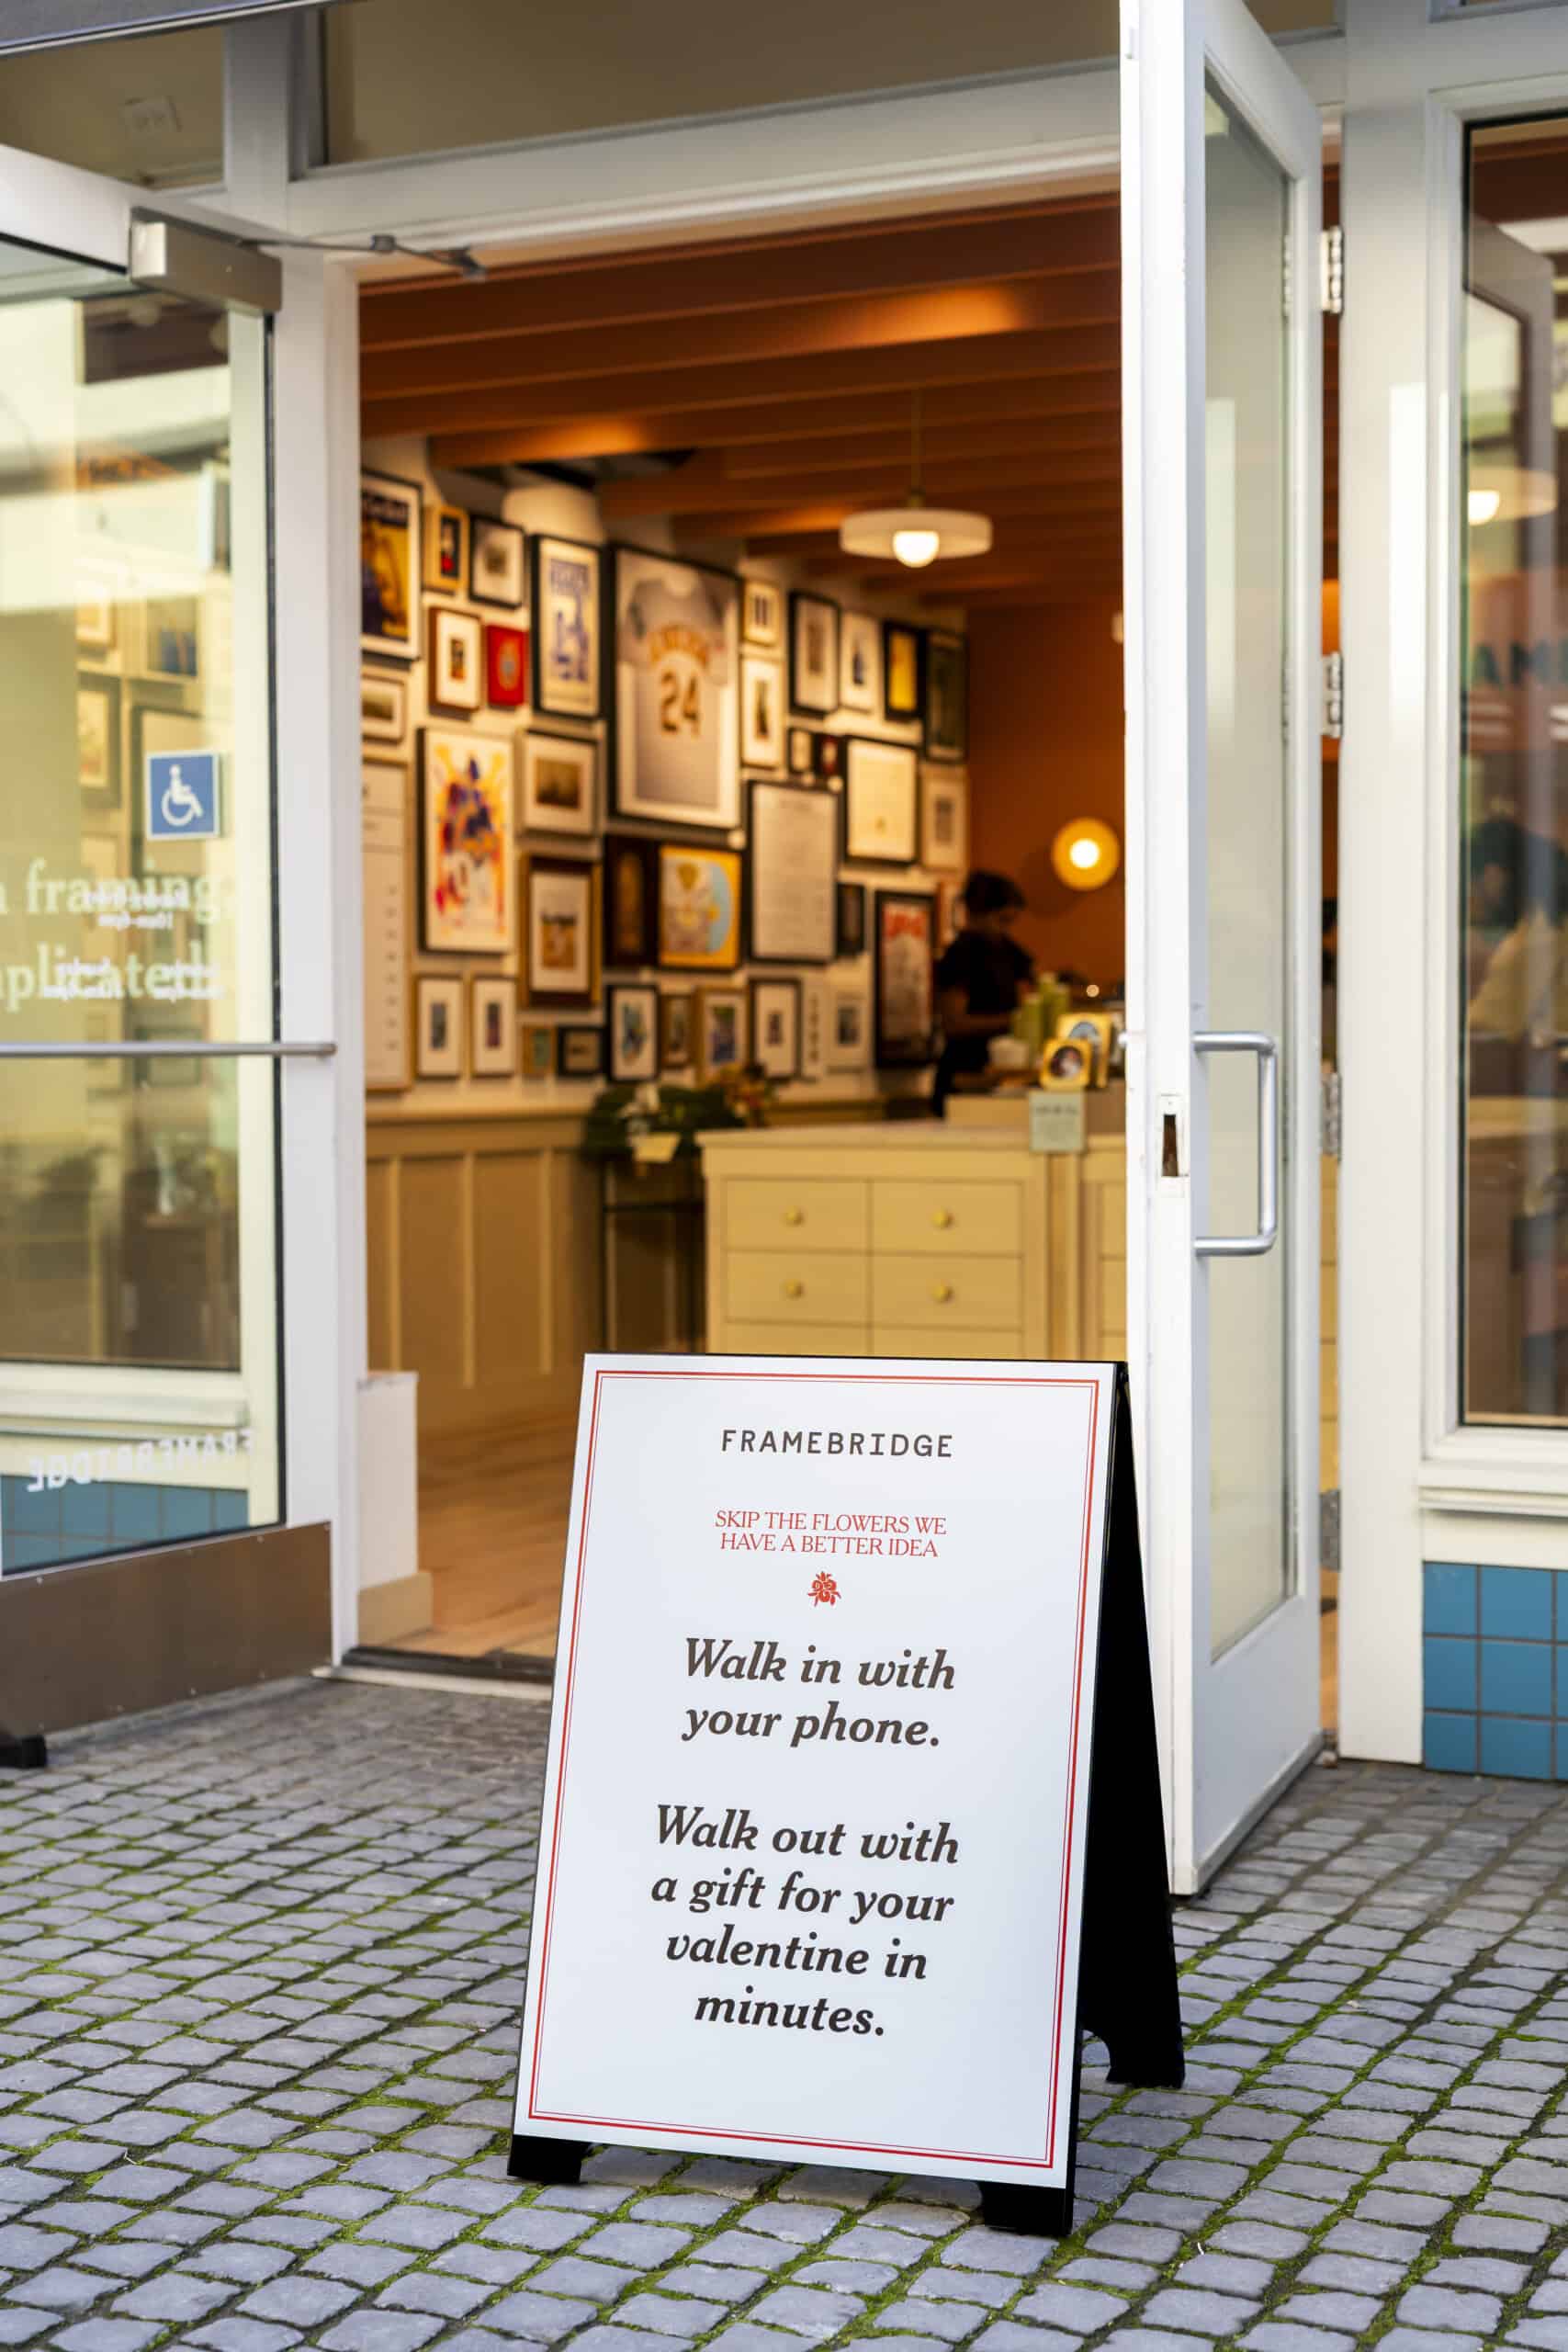 24
framing
FRAMEBRIDGE
FRAMEBRIDGE
SKIP THE FLOWERS WE
HAVE A BETTER IDEA
Walk in with
your phone.
Walk out with
a gift for your
valentine in
minutes.